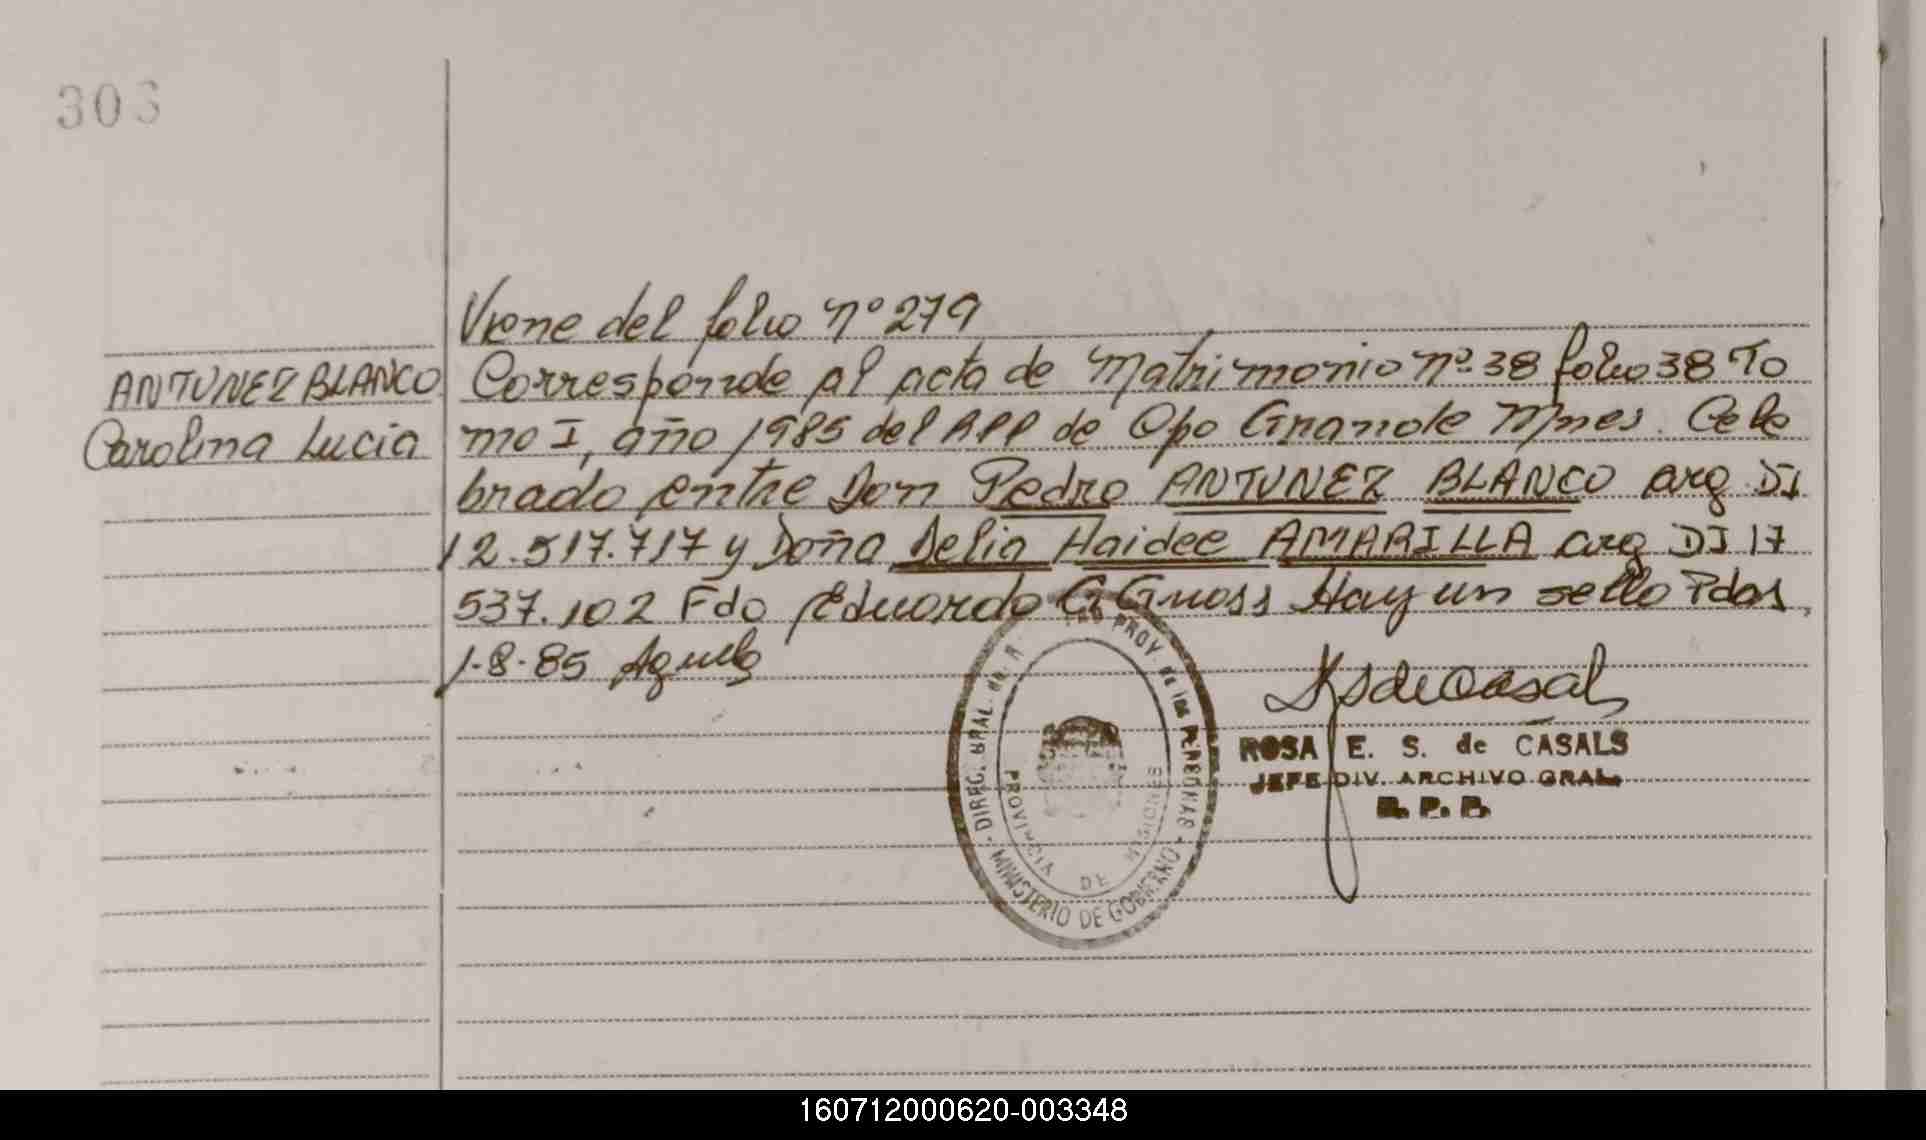 303
Viene del folio nº 279
ANTUNEZ BLANCO
Carolina Lucia
Corresponde al acta de Matrimonio nº 38 folio 38 To
mo I, año 1985 del RPP de Cpo Grande Mnes. Cele
brado entre Don Pedro ANTUNEZ BLANCO arg DI
12.517.717 y Doña Delia Haidee AMARILLA arg DI 17
537.102 Fdo Eduardo G Gnoss Hay un sello Pdas,
1-8-85
DIREC. GRAL. de PROV. de las PERSONAS
MINISTERIO DE GOBIERNO
PROVINCIA DE MISIONES
ROSA E. S. de CASALS
JEFE DIV. ARCHIVO GRAL.
R. P. P.
160712000620-003348